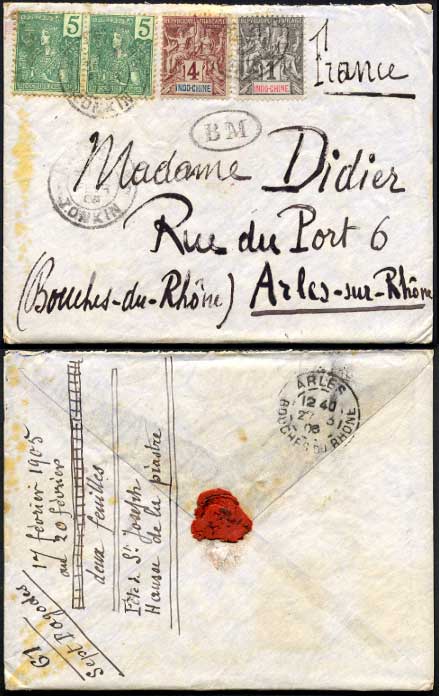 5 5 4 1
RÉPUBLIQUE FRANÇAISE
INDO-CHINE INDO-CHINE
France
TONKIN
BM
Madame Didier
TONKIN
Rue du Port 6
(Bouches-du-Rhône) Arles-sur-Rhône
ARLES
12 40
BOUCHES DU RHONE
17 février 1905
au 20 février
deux feuilles
Fête de St Joseph
Hausse de la piastre
61
Sept Pagodes